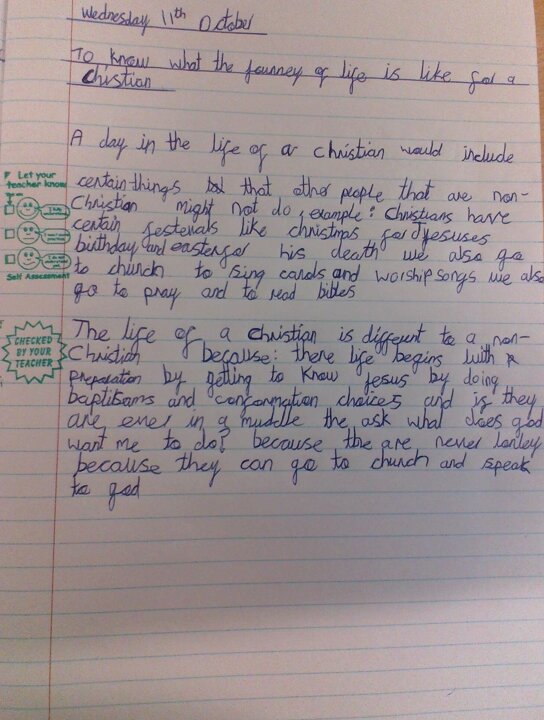 Wednesday 11th October
To know what the journey of life is like for a
Christian
A day in the life of a Christian would include
certain things that other people that are non-
Christian might not do, example: Christians have
certain festivals like christmas for jesuses
birthday and easter for his death we also go
to church to sing carols and worship songs we also
go to pray and to read bibles
Let your
teacher know
Self Assessment
CHECKED
BY YOUR
TEACHER
The life of a Christian is different to a non-
Christian because: there life begins with
preparation by getting to know jesus by doing
baptisams and choices and if they
are ever in a muddle the ask what does god
want me to do? because the are never lonley
because they can go to church and speak
to god